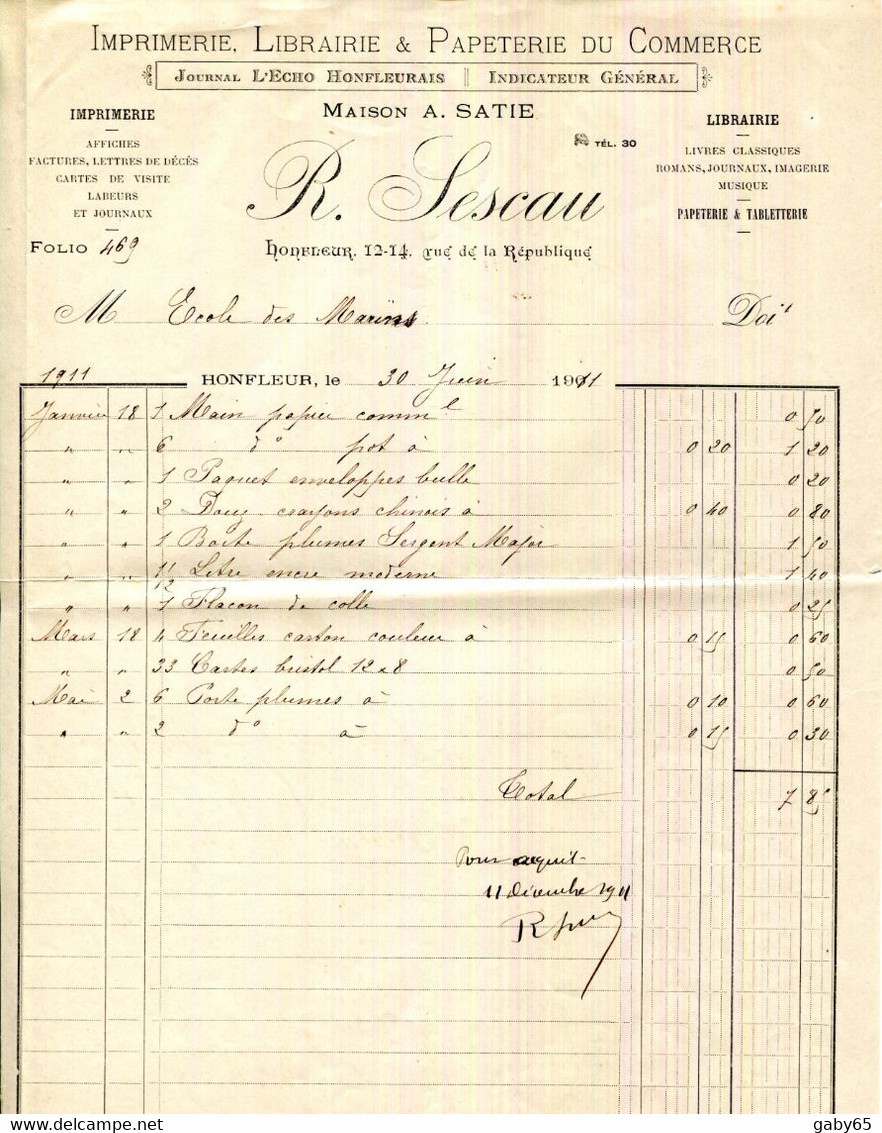 Imprimerie, Librairie & Papeterie du Commerce
Journal L'Echo Honfleurais || Indicateur Général
Maison A. SATIE
TÉL. 30
R. Sescau
Honfleur, 12-14, rue de la République
IMPRIMERIE
AFFICHES
FACTURES, LETTRES DE DÉCÈS
CARTES DE VISITE
LABEURS
ET JOURNAUX
LIBRAIRIE
LIVRES CLASSIQUES
ROMANS, JOURNAUX, IMAGERIE
MUSIQUE
PAPETERIE & TABLETTERIE
FOLIO 469
M Ecole des Marins Doit
1911 HONFLEUR, le 30 Juin 1911
Janvier 18 1 Main papier comml 0 50
" " 6 do pot à 0 20 1 20
" " 1 Paquet enveloppes bulle 0 20
" " 2 Douz crayons chinois à 0 40 0 80
" " 1 Boite plumes Sergent Major 1 50
" " 1 1/2 Litre encre moderne 1 40
" " 1 Flacon de colle 0 25
Mars 18 4 Feuilles carton couleur à 0 15 0 60
" " 33 Cartes bristol 12 x 8 0 50
Mai 2 6 Porte plumes à 0 10 0 60
" " 2 do à 0 15 0 30
Total 7 85
Pour acquit
11 Décembre 1911
gaby65